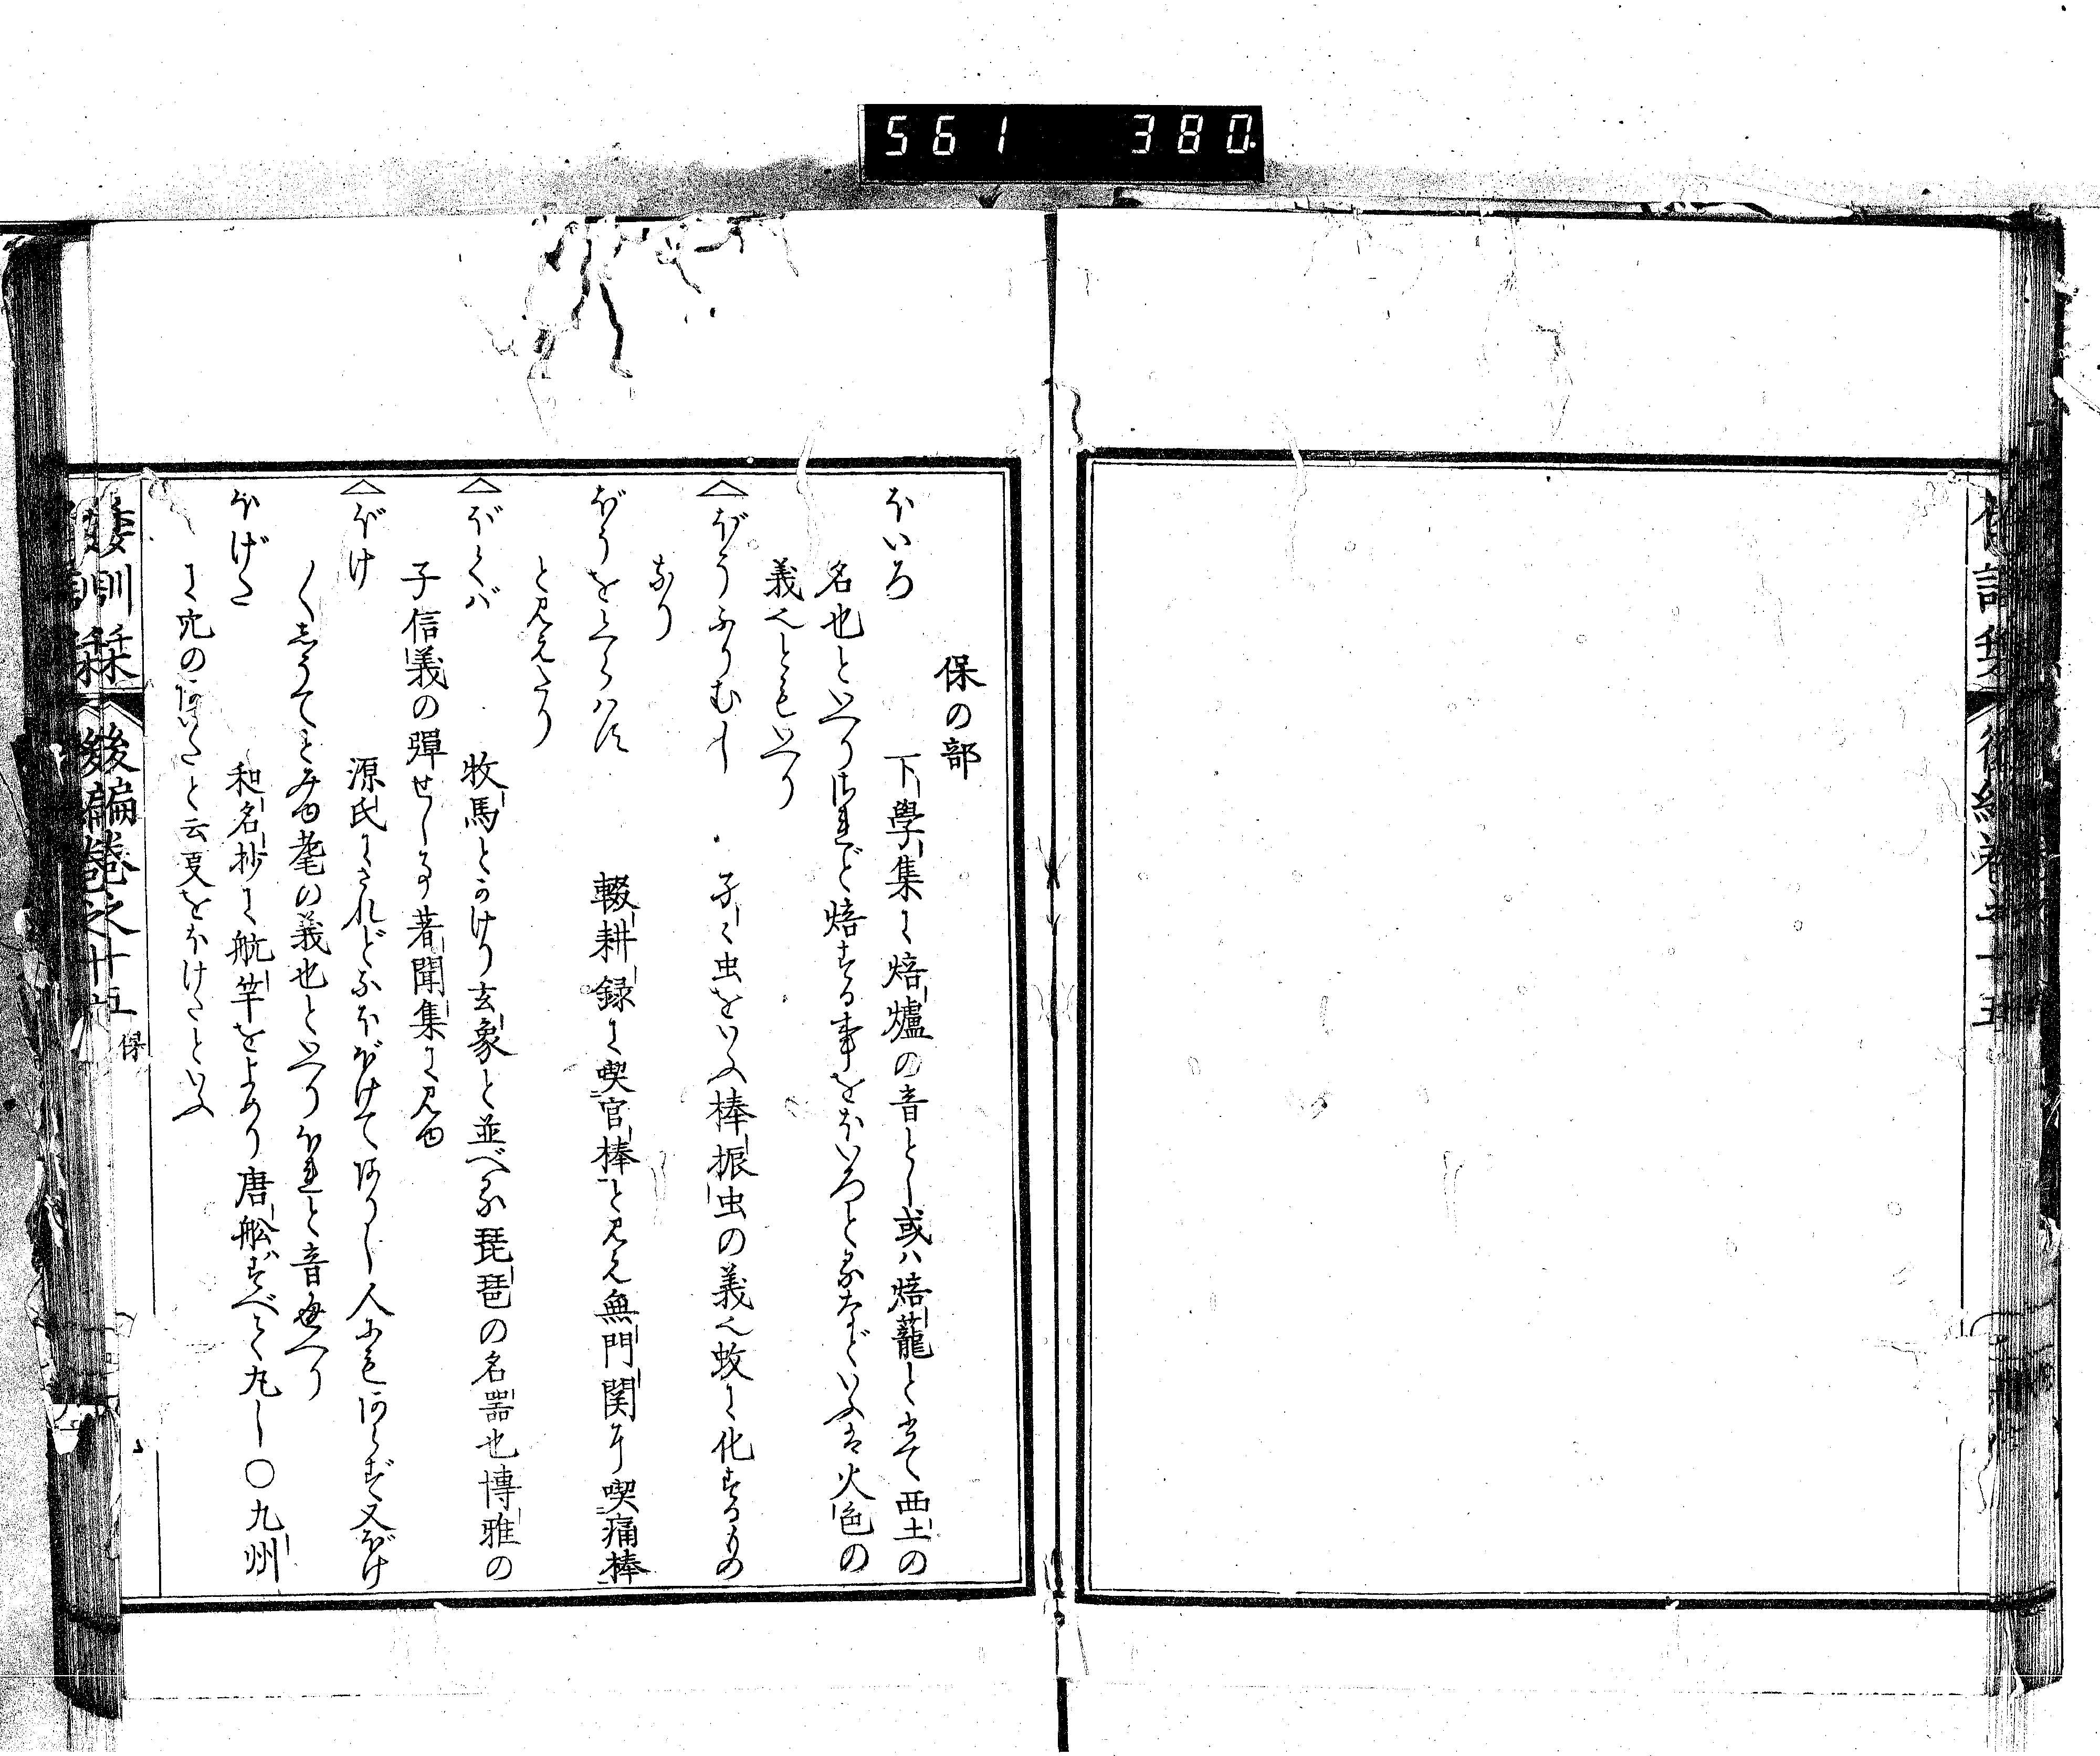 561 380
保の部
ほいろ 下學集に焙爐の音とし或ハ焙蘢とも 西土の
名也といへりされど焙する事をほいろとるなどいふは火色の
義也ともいへり
ぼうふりむし 孑孑虫をいふ棒振虫の義也蚊に化するもの
なり
ぼうをくらハす 輟耕録に喫官棒と見え無門関に喫痛棒
と見えたり
ぼくば 牧馬とかけり玄象と並べる琵琶の名器也博雅の
子信義の彈せしよし著聞集に見ゆ
ぼけ 源氏にされどなほぼけてありし人にもあらず又ぼけ
〳〵しうてとみゆ耄の義也といへりほれと音通へり
ほげた 和名抄に帆竿をよめり唐舩ずべて丸し〇九州
に穴のあいたと云夏をほけたといふ
倭訓栞 後編巻之十五 保